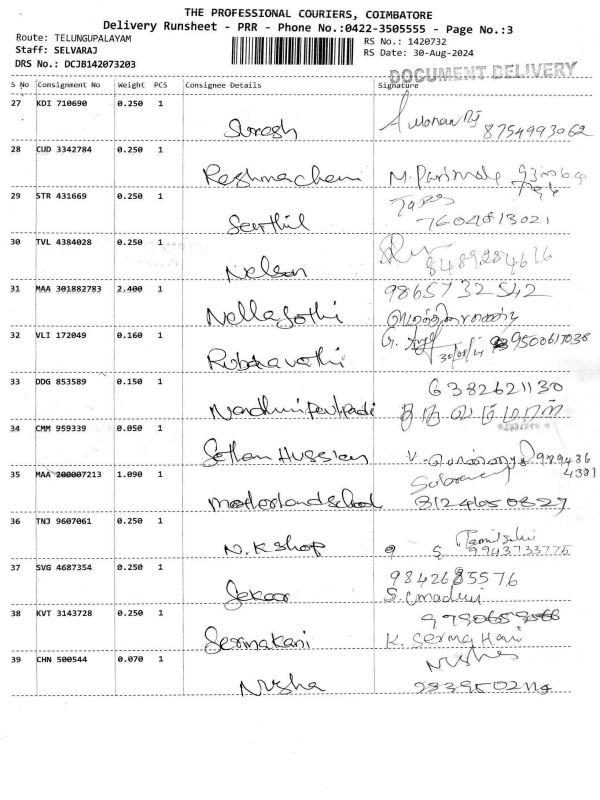 THE PROFESSIONAL COURIERS, COIMBATORE
Delivery Runsheet - PRR - Phone No.:0422-3505555 - Page No.:3
Route: TELUNGUPALAYAM
Staff: SELVARAJ
DRS No.: DCJB142073203
RS No.: 1420732
RS Date: 30-Aug-2024
DOCUMENT DELIVERY
S No Consignment No Weight PCS Consignee Details Signature
27 KDI 710690 0.250 1
Suresh 8754993062
28 CUD 3342784 0.250 1
Reshma M. Parimala
29 STR 431669 0.250 1
Senthil 7604813021
30 TVL 4384028 0.250 1
Nelson 8489284616
31 MAA 301882783 2.400 1 9865732542
Nella Jothi
32 VLI 172049 0.160 1
30/08/24 9500617038
33 DDG 853589 0.150 1 6382621130
34 CMM 959339 0.050 1
Hussien
35 MAA 200007213 1.090 1
Motherland school
36 TNJ 9607061 0.250 1
N.K shop 9943733775
37 SVG 4687354 0.250 1 9842685576
Sekar S. Umadevi
38 KVT 3143728 0.250 1
Sermakani K. Sermakani
39 CHN 500544 0.070 1 Nisha
Nisha